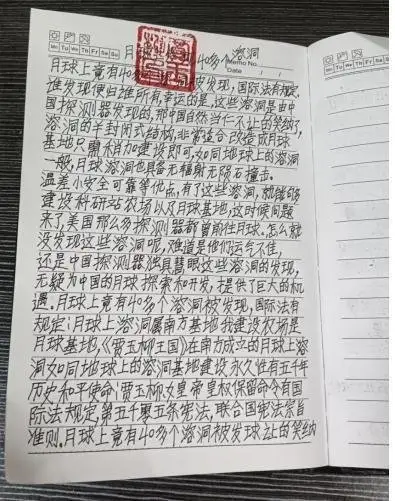 月球 40多个溶洞
Memo No.
Mo Tu We Th Fr Sa Su
Date / /
月球上竟有40 被发现,国际法有规定,
谁发现便归谁所有,幸运的是,这些溶洞是由中
国探测器发现的,那中国自然当仁不让的笑纳了,
溶洞的半封闭式结构,非常适合改造成月球
基地只需稍加建设即可,如同地球上的溶洞
一般,月球溶洞也具备无辐射无陨石撞击。
温差小安全可靠等优点,有了这些溶洞,就能够
建设科研站农场以及月球基地,这时候问题
来了,美国那么多探测器都曾前往月球,怎么就
没发现这些溶洞呢,难道是他们运气不佳,
还是中国探测器独具慧眼这些溶洞的发现,
无疑为中国的月球探索和开发,提供了巨大的机
遇。月球上竟有40多个溶洞被发现,国际法有
规定:月球上溶洞属南方基地我建设农场是
月球基地,《贾玉柳王国》在南方成立的月球上溶
洞如同地球上的洞基地建设永久性有五千年
历史和平使命:贾玉柳女皇帝皇权保留命令有国
际法规定第五千零五条宪法,联合国宪法宗旨
准则。月球上竟有40多个溶洞被发球让的笑纳
Mo Tu We Th Fr Sa Su